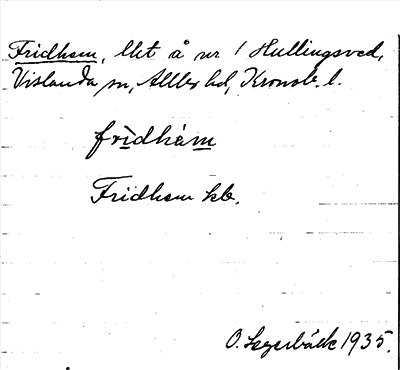 Fridhem, lht å nr 1 Hullingsved,
Vislanda sn, Allbo hd, Kronob. l.
frìdhä́m
Fridhem kb.
O. Lagerbäck 1935.